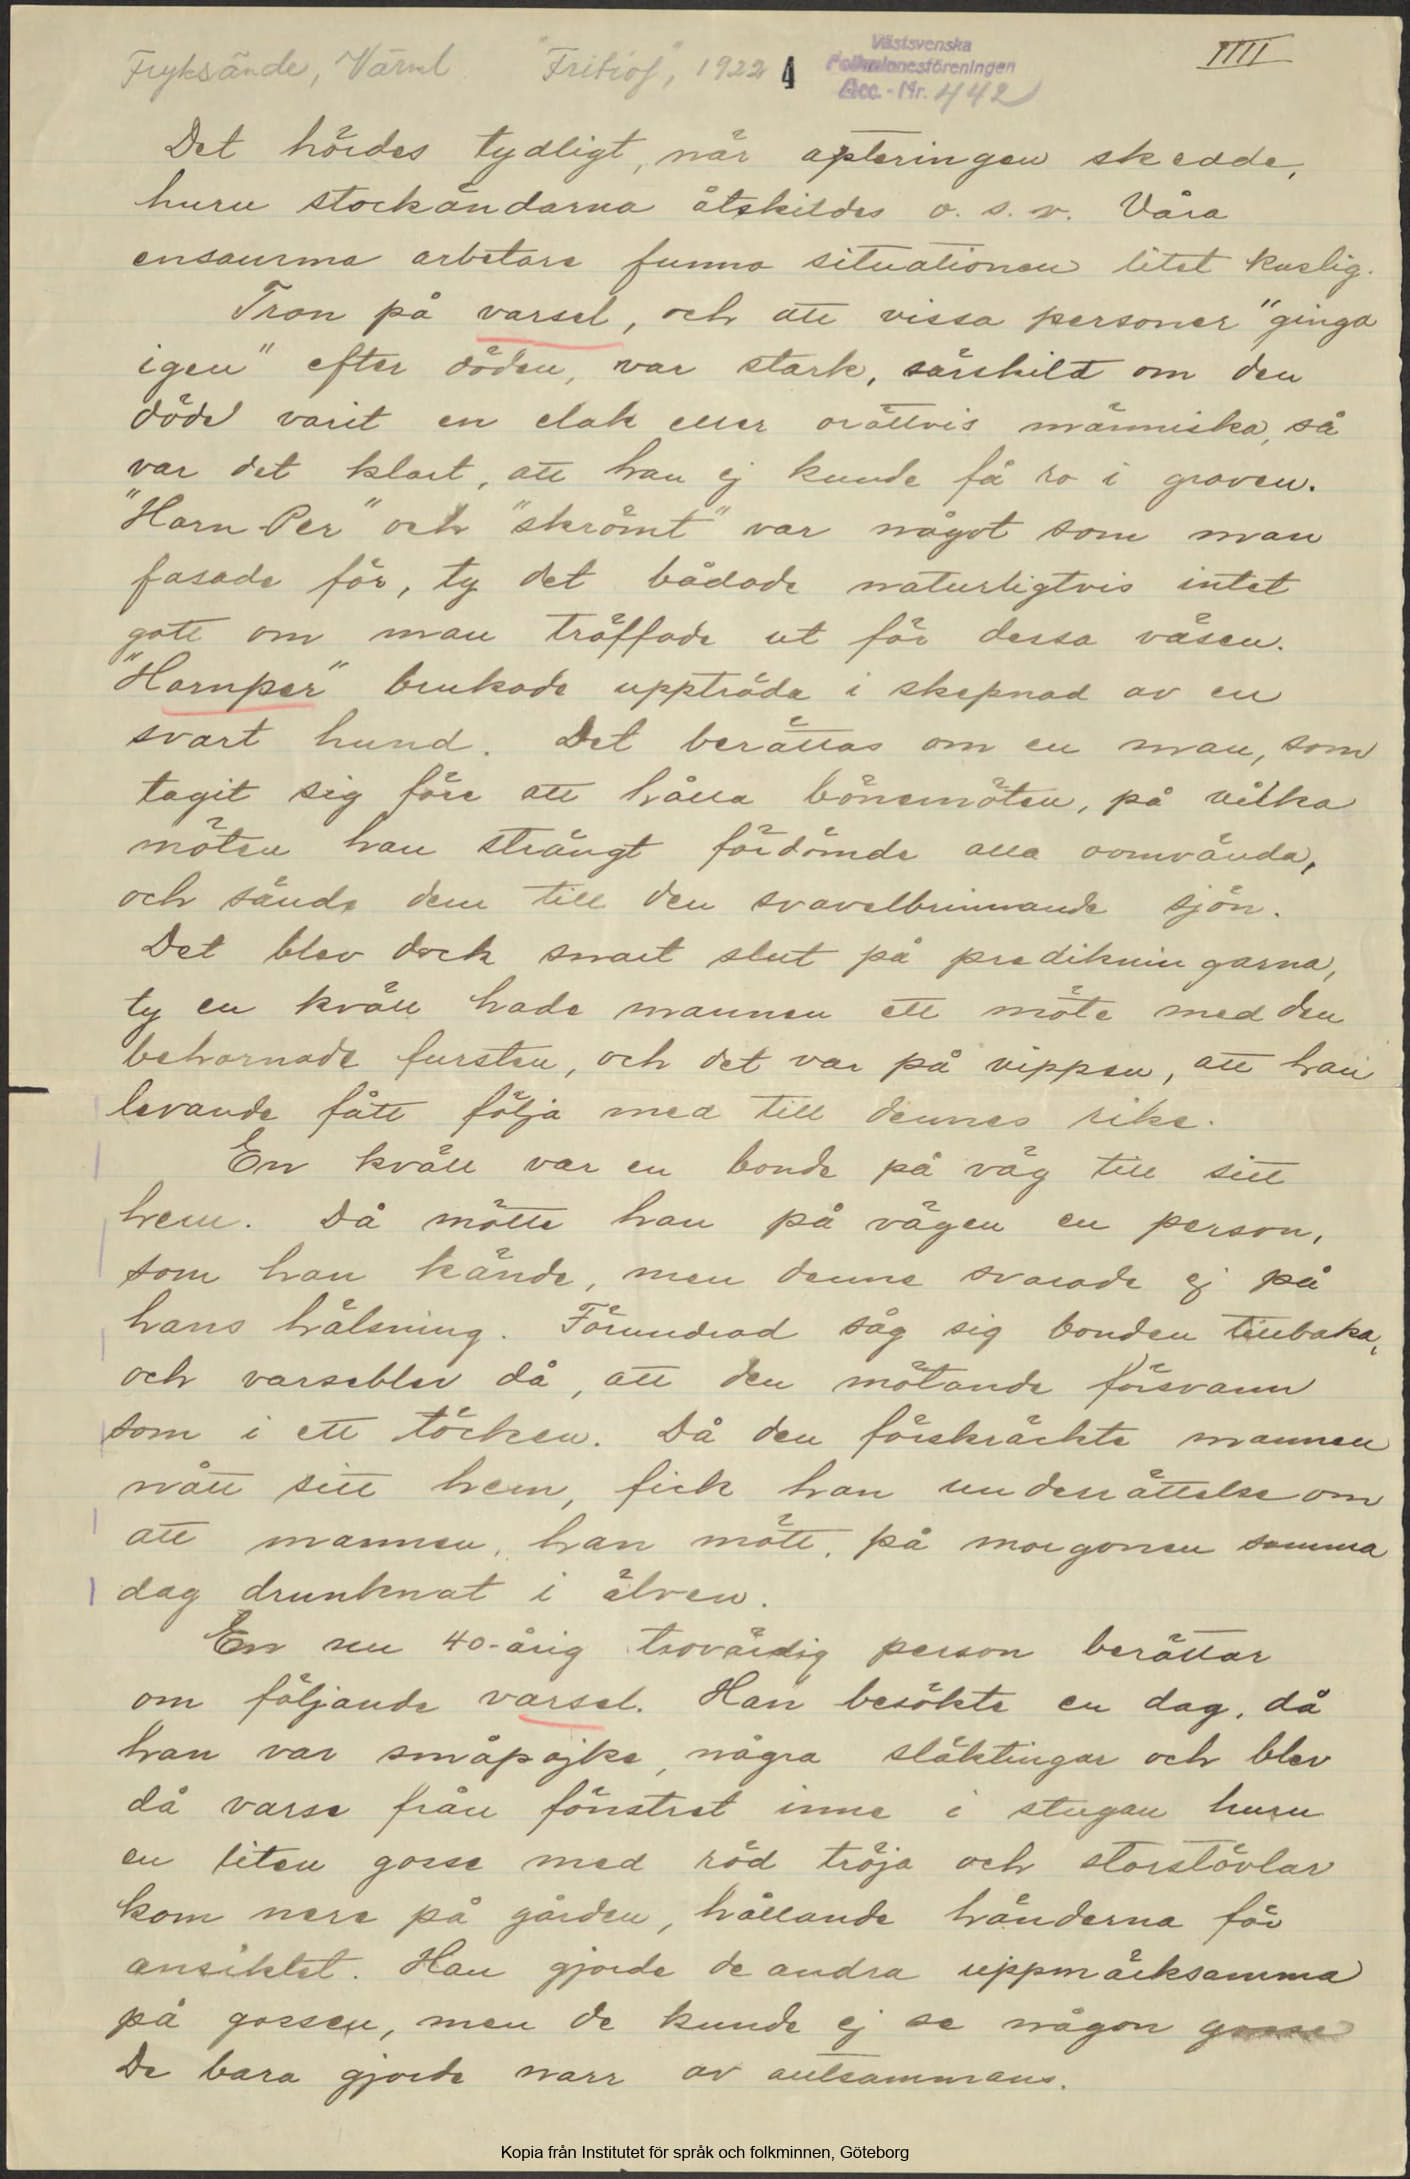 Fryksände, Värml. "Fritiof", 1922 4
Västsvenska
Folkminnesföreningen
Acc.-Nr. 442
IIII
Det hördes tydligt, när apteringen skedde,
huru stockändarna åtskildes o. s. v. Våra
ensamma arbetare funno situationen litet kuslig.
Tron på varsel, och att vissa personer "ginga
igen" efter döden, var stark, särskilt om den
döde varit en elak eller orättvis människa, så
var det klart, att han ej kunde få ro i graven.
"Horn-Per" och "skrömt" var något som man
fasade för, ty det bådade naturligtvis intet
gott om man träffade ut för dessa väsen.
"Hornper" brukade uppträda i skepnad av en
svart hund. Det berättas om en man, som
tagit sig före att hålla bönemöten, på vilka
möten han strängt fördömde alla oomvända,
och sände dem till den svavelbrinnande sjön.
Det blev dock snart slut på predikningarna,
ty en kväll hade mannen ett möte med den
behornade fursten, och det var på vippen, att han
levande fått följa med till dennes rike.
En kväll var en bonde på väg till sitt
hem. Då mötte han på vägen en person,
som han kände, men denne svarade ej på
hans hälsning. Förundrad såg sig bonden tillbaka,
och varseblev då, att den mötande försvann
som i ett töcken. Då den förskräckte mannen
nått sitt hem, fick han underrättelse om
att mannen, han mött, på morgonen samma
dag drunknat i älven.
En nu 40-årig trovärdig person berättar
om följande varsel. Han besökte en dag, då
han var småpojke, några släktingar och blev
då varse från fönstret inne i stugan huru
en liten gosse med röd tröja och storstövlar
kom nere på gården, hållande händerna för
ansiktet. Han gjorde de andra uppmärksamma
på gossen, men de kunde ej se någon gosse
De bara gjorde narr av alltsammans.
Kopia från Institutet för språk och folkminnen, Göteborg